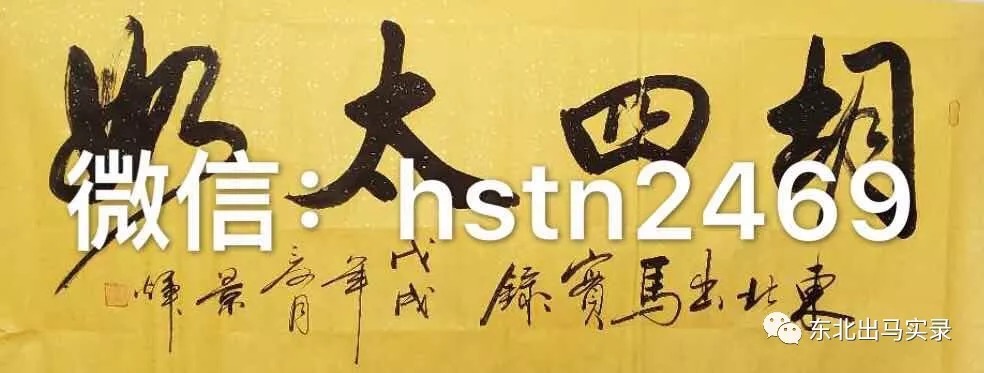 胡四太奶
微信：hstn2469
東北出馬實錄 戊戌年月 景煇
东北出马实录